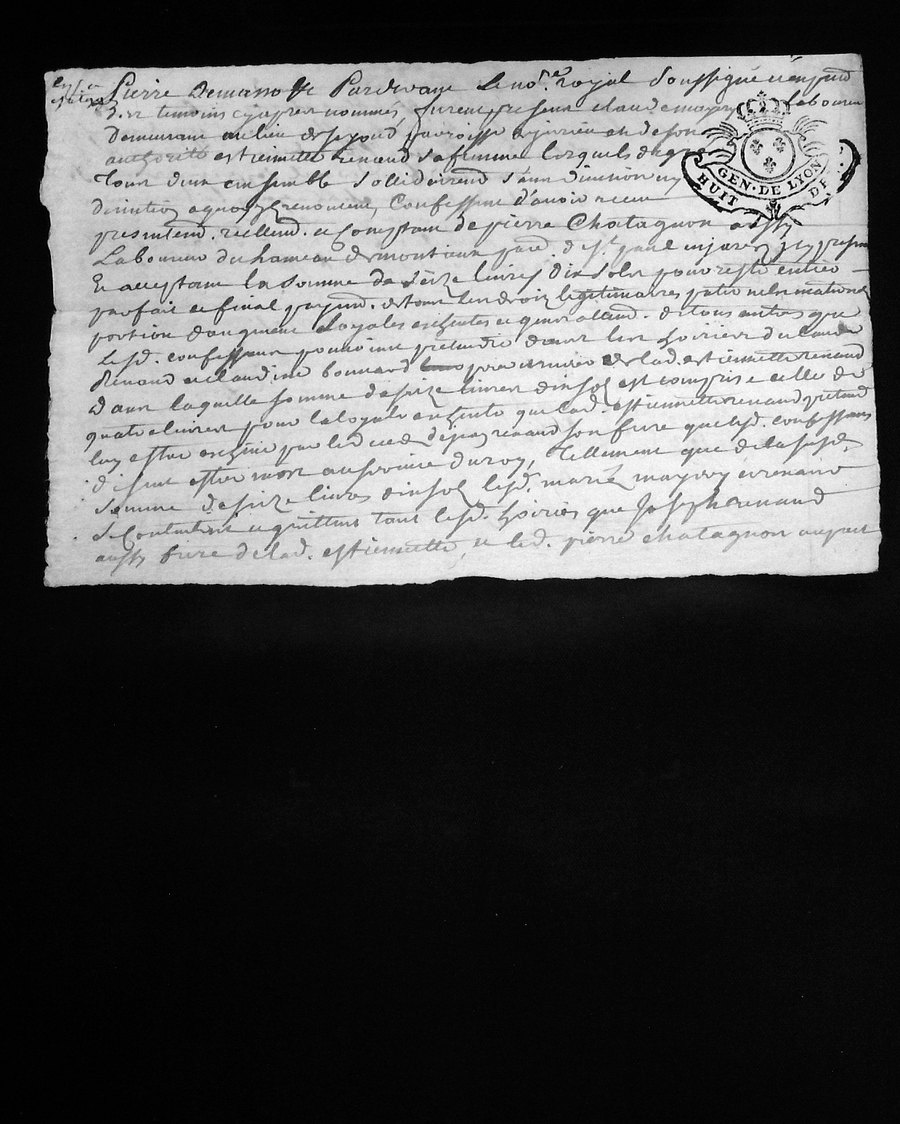 Pierre Demasotte Pardevant le no.re royal soussigné
temoins cyapres nommés furent presens claude laboureur
Demeurant au lieu de paroisse de son
authorité estiennette renaud sa femme lesquels de gre
Tous deux ensemble sollidairement sans division ny
renoncent, Confessent d'avoir receu
presentemd. reellemd. et Comptant de pierre Chatagnon aussy
Laboureur du hameau de montieux paroi. de st. paul en jarez
Et acceptant la somme de seize livres dix sols pour reste entier
parfait et final payemd. de tous les droits legitimaires paternels maternels
portion d'augment loyales escheutes et generallemd. de tous autres que
Lesd. confessans pouvoient pretendre dans les hoiries du
Renaud et claudine bonnard pere et mere de lad. estiennette renaud
Dans laquelle somme de seize livres dix sols est comprise celle de
quatre livres pour la loyale escheute que lad. estiennette renaud pretend
luy estre escheue par le deces de jean renaud son frere que lesd. confessans
disent estre mort au service du roy, tellement que de lad.
somme de seize livres dix sols lesd. mariés et renaud
se Contentent et quittent tant lesd. hoiries que Joseph renaud
aussy frere de lad. estiennette, et led. pierre chatagnon
GEN. DE LYON
HUIT DE